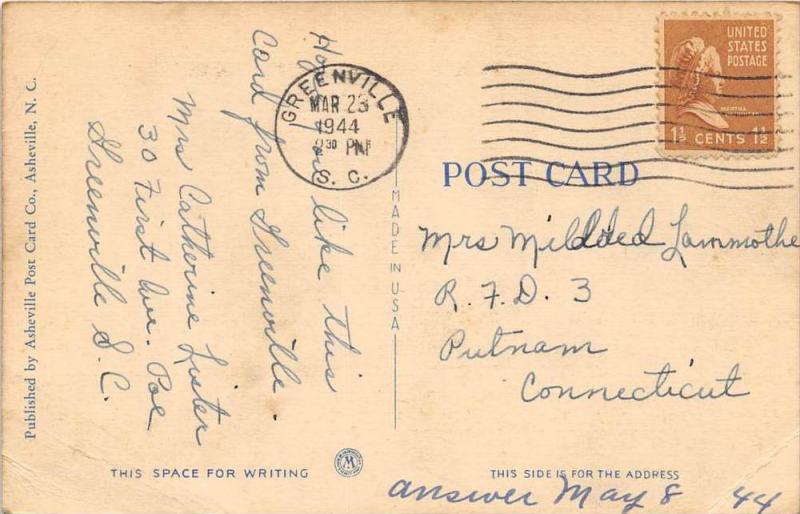 Published by Asheville Post Card Co., Asheville, N. C.
Hope you like this
Card from Greenville.
Mrs Catherine Lister
30 First Ave. Poe
Greenville S.C.
GREENVILLE
MAR 23
1944
30 PM
S. C.
UNITED
STATES
POSTAGE
MARTHA
1½ CENTS 1½
POST CARD
MADE IN USA
Mrs Mildded Lammothe
R. F. D. 3
Putnam
Connecticut
THIS SPACE FOR WRITING
THIS SIDE IS FOR THE ADDRESS
answer May 8 44